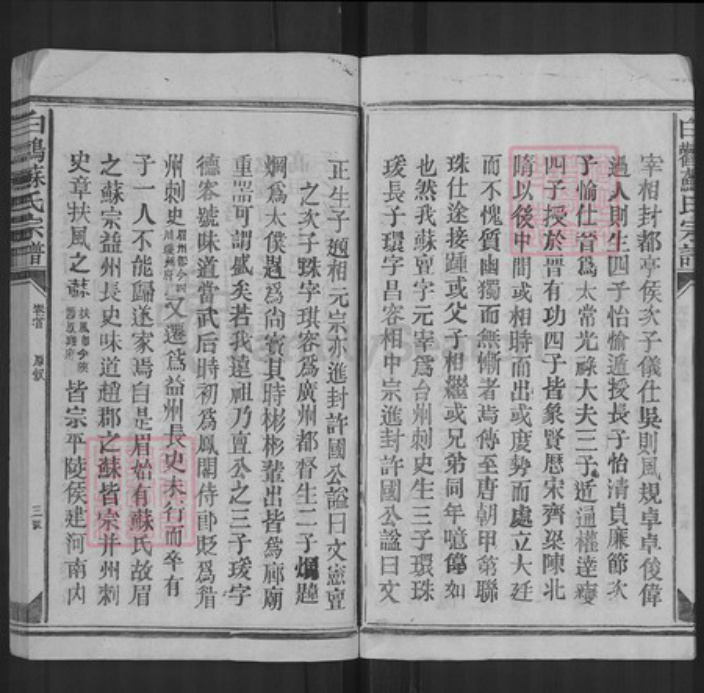 宰相封都亭侯次子儀仕吳則風規卓卓俊偉
過人則生四子怡愉遁授長子怡清貞廉節次
子愉仕晉爲太常光祿大夫三子遁通權達變
四子授於晉有功四子皆象賢歷宋齊梁陳北
隋以後中間或相時而出或度勢而處立大廷
而不愧質幽獨而無慚者焉傳至唐朝甲第聯
珠仕途接踵或父子相繼或兄弟同年噫偉如
也然我蘇亶字元宰爲台州刺史生三子環珠
瑗長子環字昌容相中宗進封許國公謚曰文
正生子頲相元宗亦進封許國公謚曰文憲亶
之次子珠字琪容爲廣州都督生二子
爲太僕 爲尙寶其時彬彬輩出皆爲廊廟
重器可謂盛矣若我遠祖乃亶公之三子瑗字
德容號味道當武后時初爲鳳閣侍郎貶爲眉
州刺史眉州卽今四川 州府又遷爲益州長史未行而卒有
子一人不能歸遂家焉自是眉始有蘇氏故眉
之蘇宗益州長史味道趙郡之蘇皆宗并州刺
史章扶風之蘇扶風卽今陝 府皆宗平陵侯建河南內
白鶴蘇氏宗譜
卷首
三
白鶴蘇氏宗譜